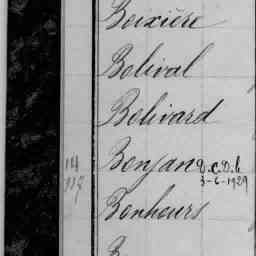 Boixière
Bolival
Bolivard
114 Bonjan D.C.D. le
117 3-6-1929
Bonheurs
B